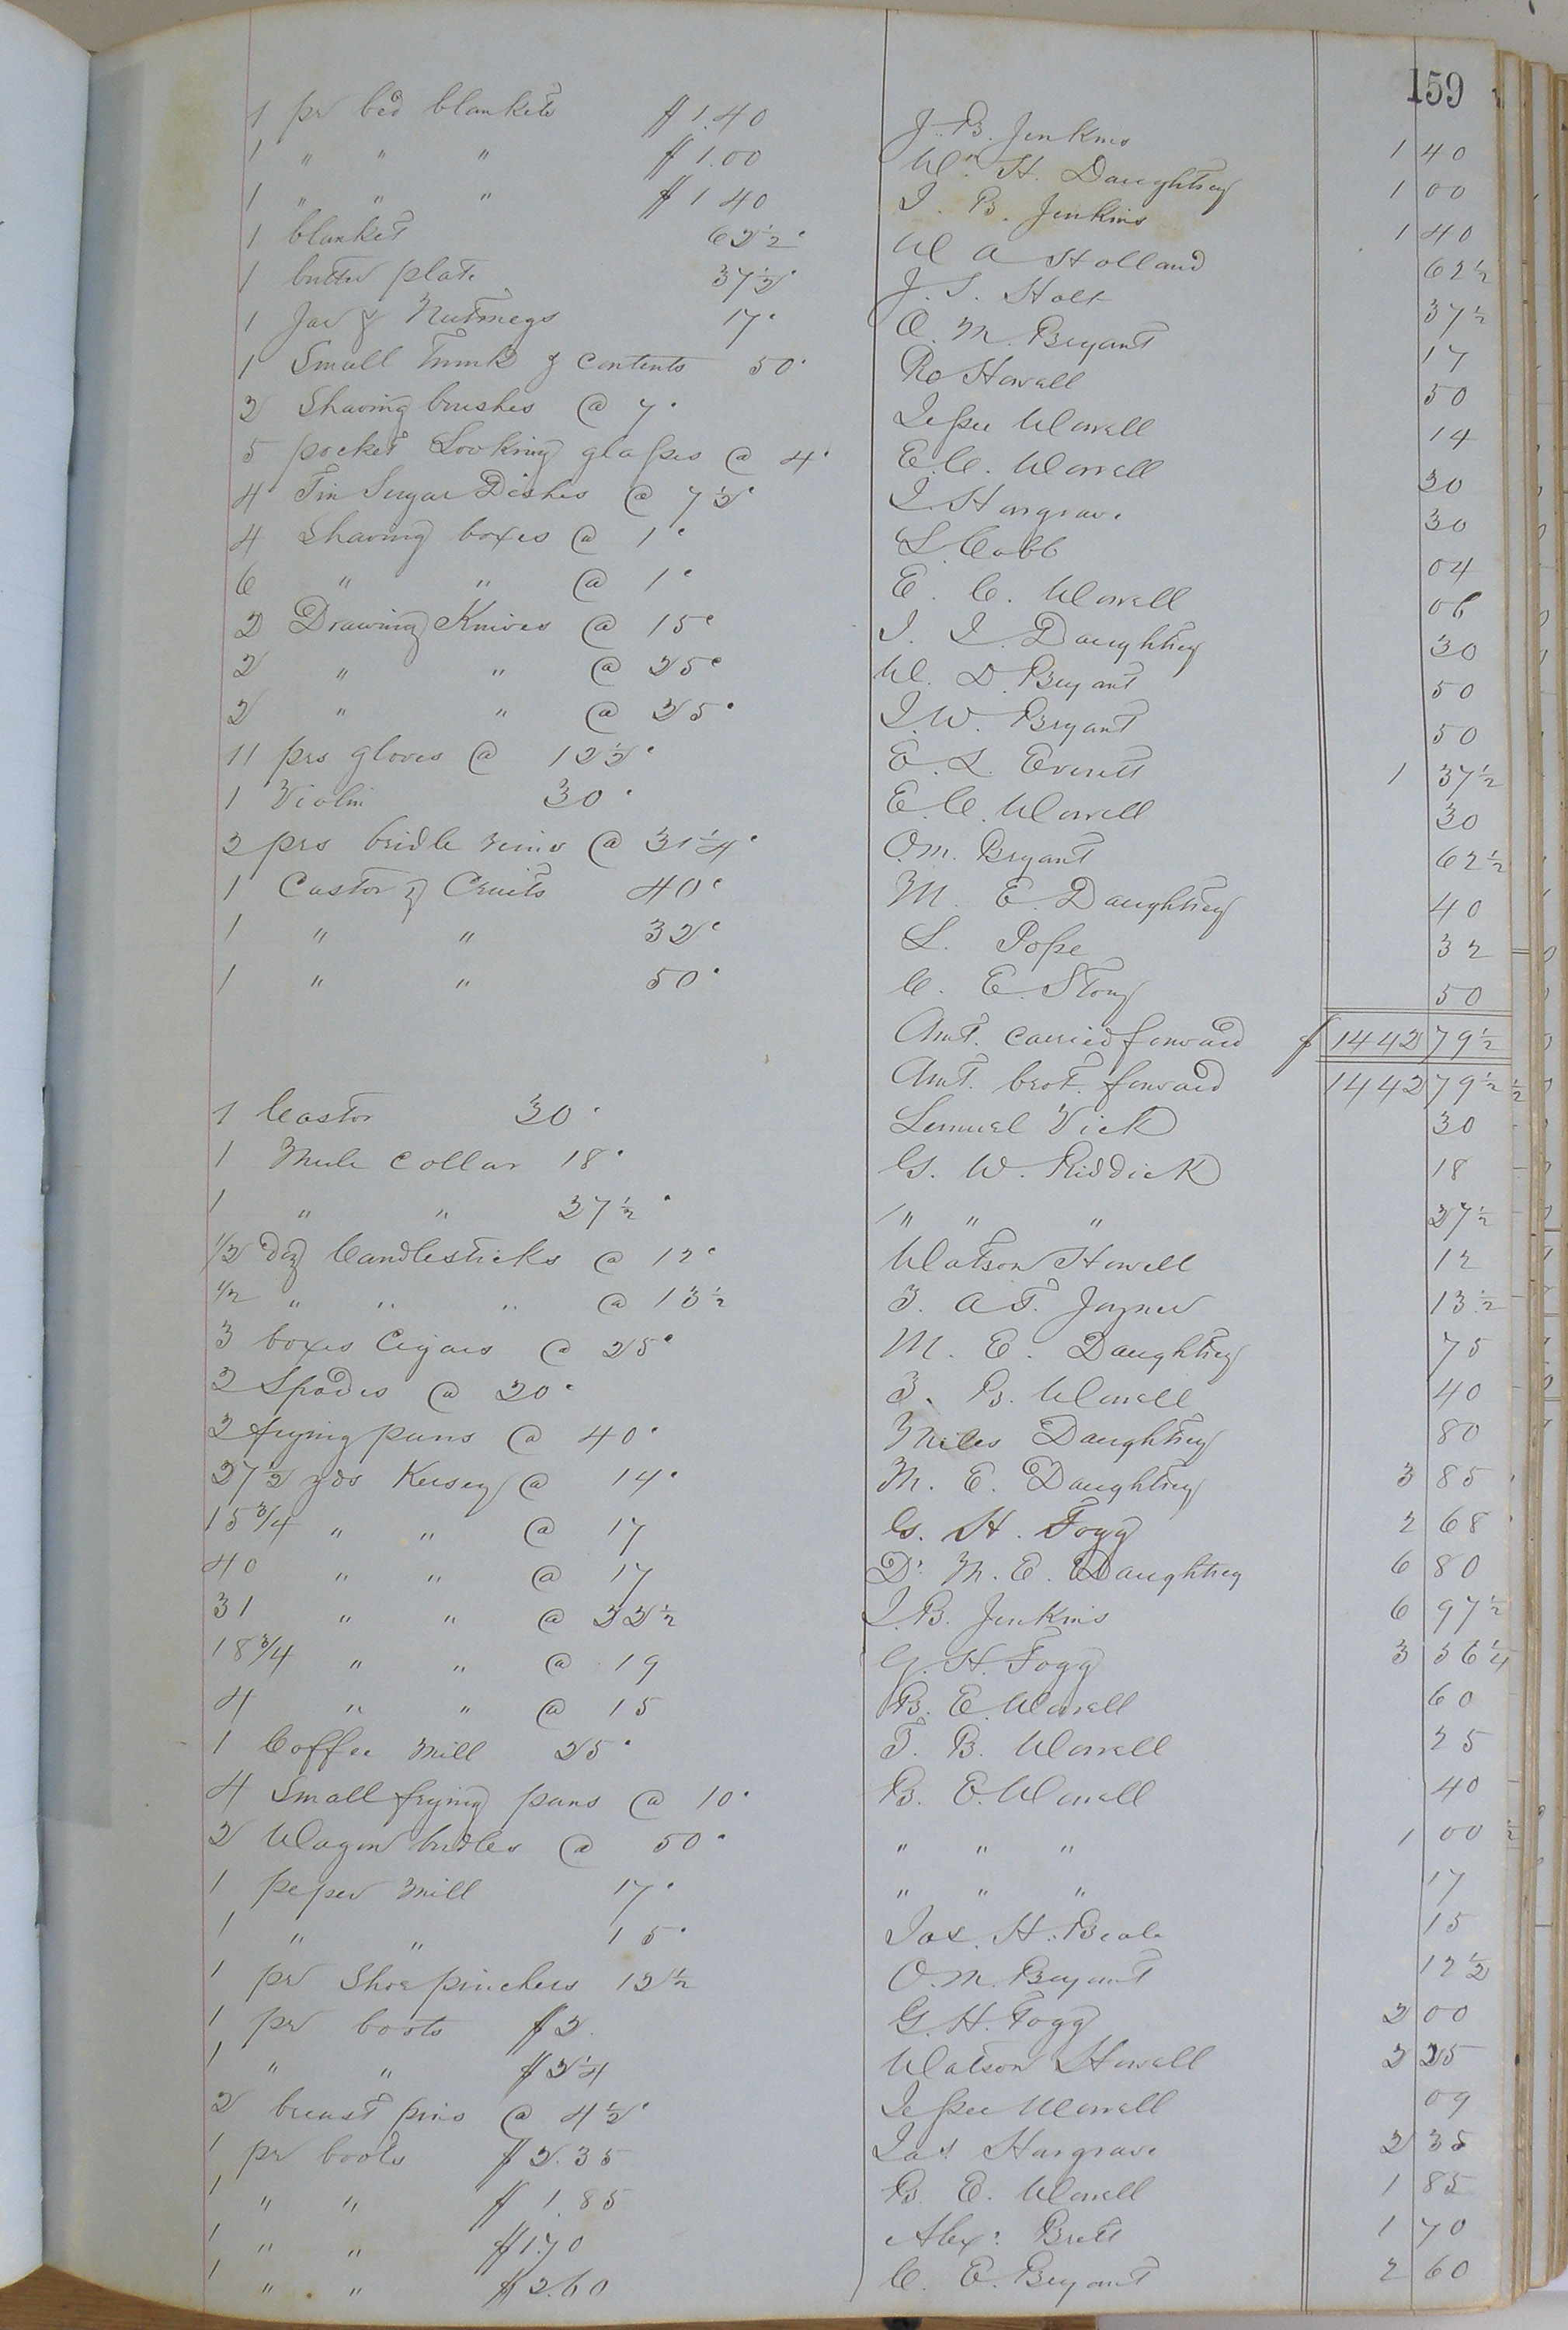 159
1 pr bed blankets $1.40 J. B. Jenkins 1 40
1 " " " $1.00 Wm H. Daughtrey 1 00
1 " " " $1 40 J. B. Jenkins 1 40
1 blanket 62½c W A Holland 62½
1 butter plate 37½c J. S. Holt 37½
1 Jar & Nutmegs 17c O. M. Bryant 17
1 Small Trunk & contents 50c Ro Howell 50
2 Shaving brushes @ 7c Jesse Worrell 14
5 pocket Looking glasses @ 4c E. C. Worrell 20
4 Tin Sugar Dishes @ 7½c J. Hargrave 30
4 Shaving boxes @ 1c L. Cobb 04
6 " " @ 1c E. C. Worrell 06
2 Drawing Knives @ 15c J. J. Daughtrey 30
2 " " @ 25c W. D. Bryant 50
2 " " @ 25c J. W. Bryant 50
11 prs gloves @ 12½c E. L. Everett 1 37½
1 Violin 30c E. C. Worrell 30
2 prs bridle reins @ 31¼c O. M. Bryant 62½
1 Castor & Cruits 40c M. E. Daughtrey 40
1 " " 32c L. Pope 32
1 " " 50c C. E. Story 50
Amt. carried forward $ 1442 79½
Amt. brot. forward 1442 79½
1 Castor 30c Lemuel Vick 30
1 Mule collar 18c G. W. Riddick 18
1 " " 27½c " " " 27½
1/2 doz Candlesticks @ 12c Watson Howell 12
1/2 " " " @ 13½ T. A. T. Joyner 13½
3 boxes Cigars @ 25c M. E. Daughtrey 75
2 Spades @ 20c T. B. Worrell 40
2 frying pans @ 40c Miles Daughtrey 80
27½ yds Kersey @ 14c M. E. Daughtrey 3 85
15 3/4 " " @ 17 G. H. Fogg 2 68
40 " " @ 17 Dr M. E. Daughtrey 6 80
31 " " @ 22½ J. B. Jenkins 6 97½
18 3/4 " " @ 19 G. H. Fogg 3 56¼
4 " " @ 15 B. E. Worrell 60
1 Coffee Mill 25c T. B. Worrell 25
4 Small frying pans @ 10c B. E. Worrell 40
2 Wagon bridles @ 50c " " " 1 00
1 peper Mill 17c " " " 17
1 " " 15c Jas. H. Beale 15
1 pr Shoe pinchers 12½ O. M. Bryant 12½
1 pr boots $2. G. H. Fogg 2 00
1 " " $2¼ Watson Howell 2 25
2 breast pins @ 4½c Jesse Worrell 09
1 pr boots $2.35 Jas. Hargrave 2 35
1 " " $1.85 B. E. Worrell 1 85
1 " " $1.70 Alex: Brett 1 70
1 " " $2.60 C. E. Bryant 2 60